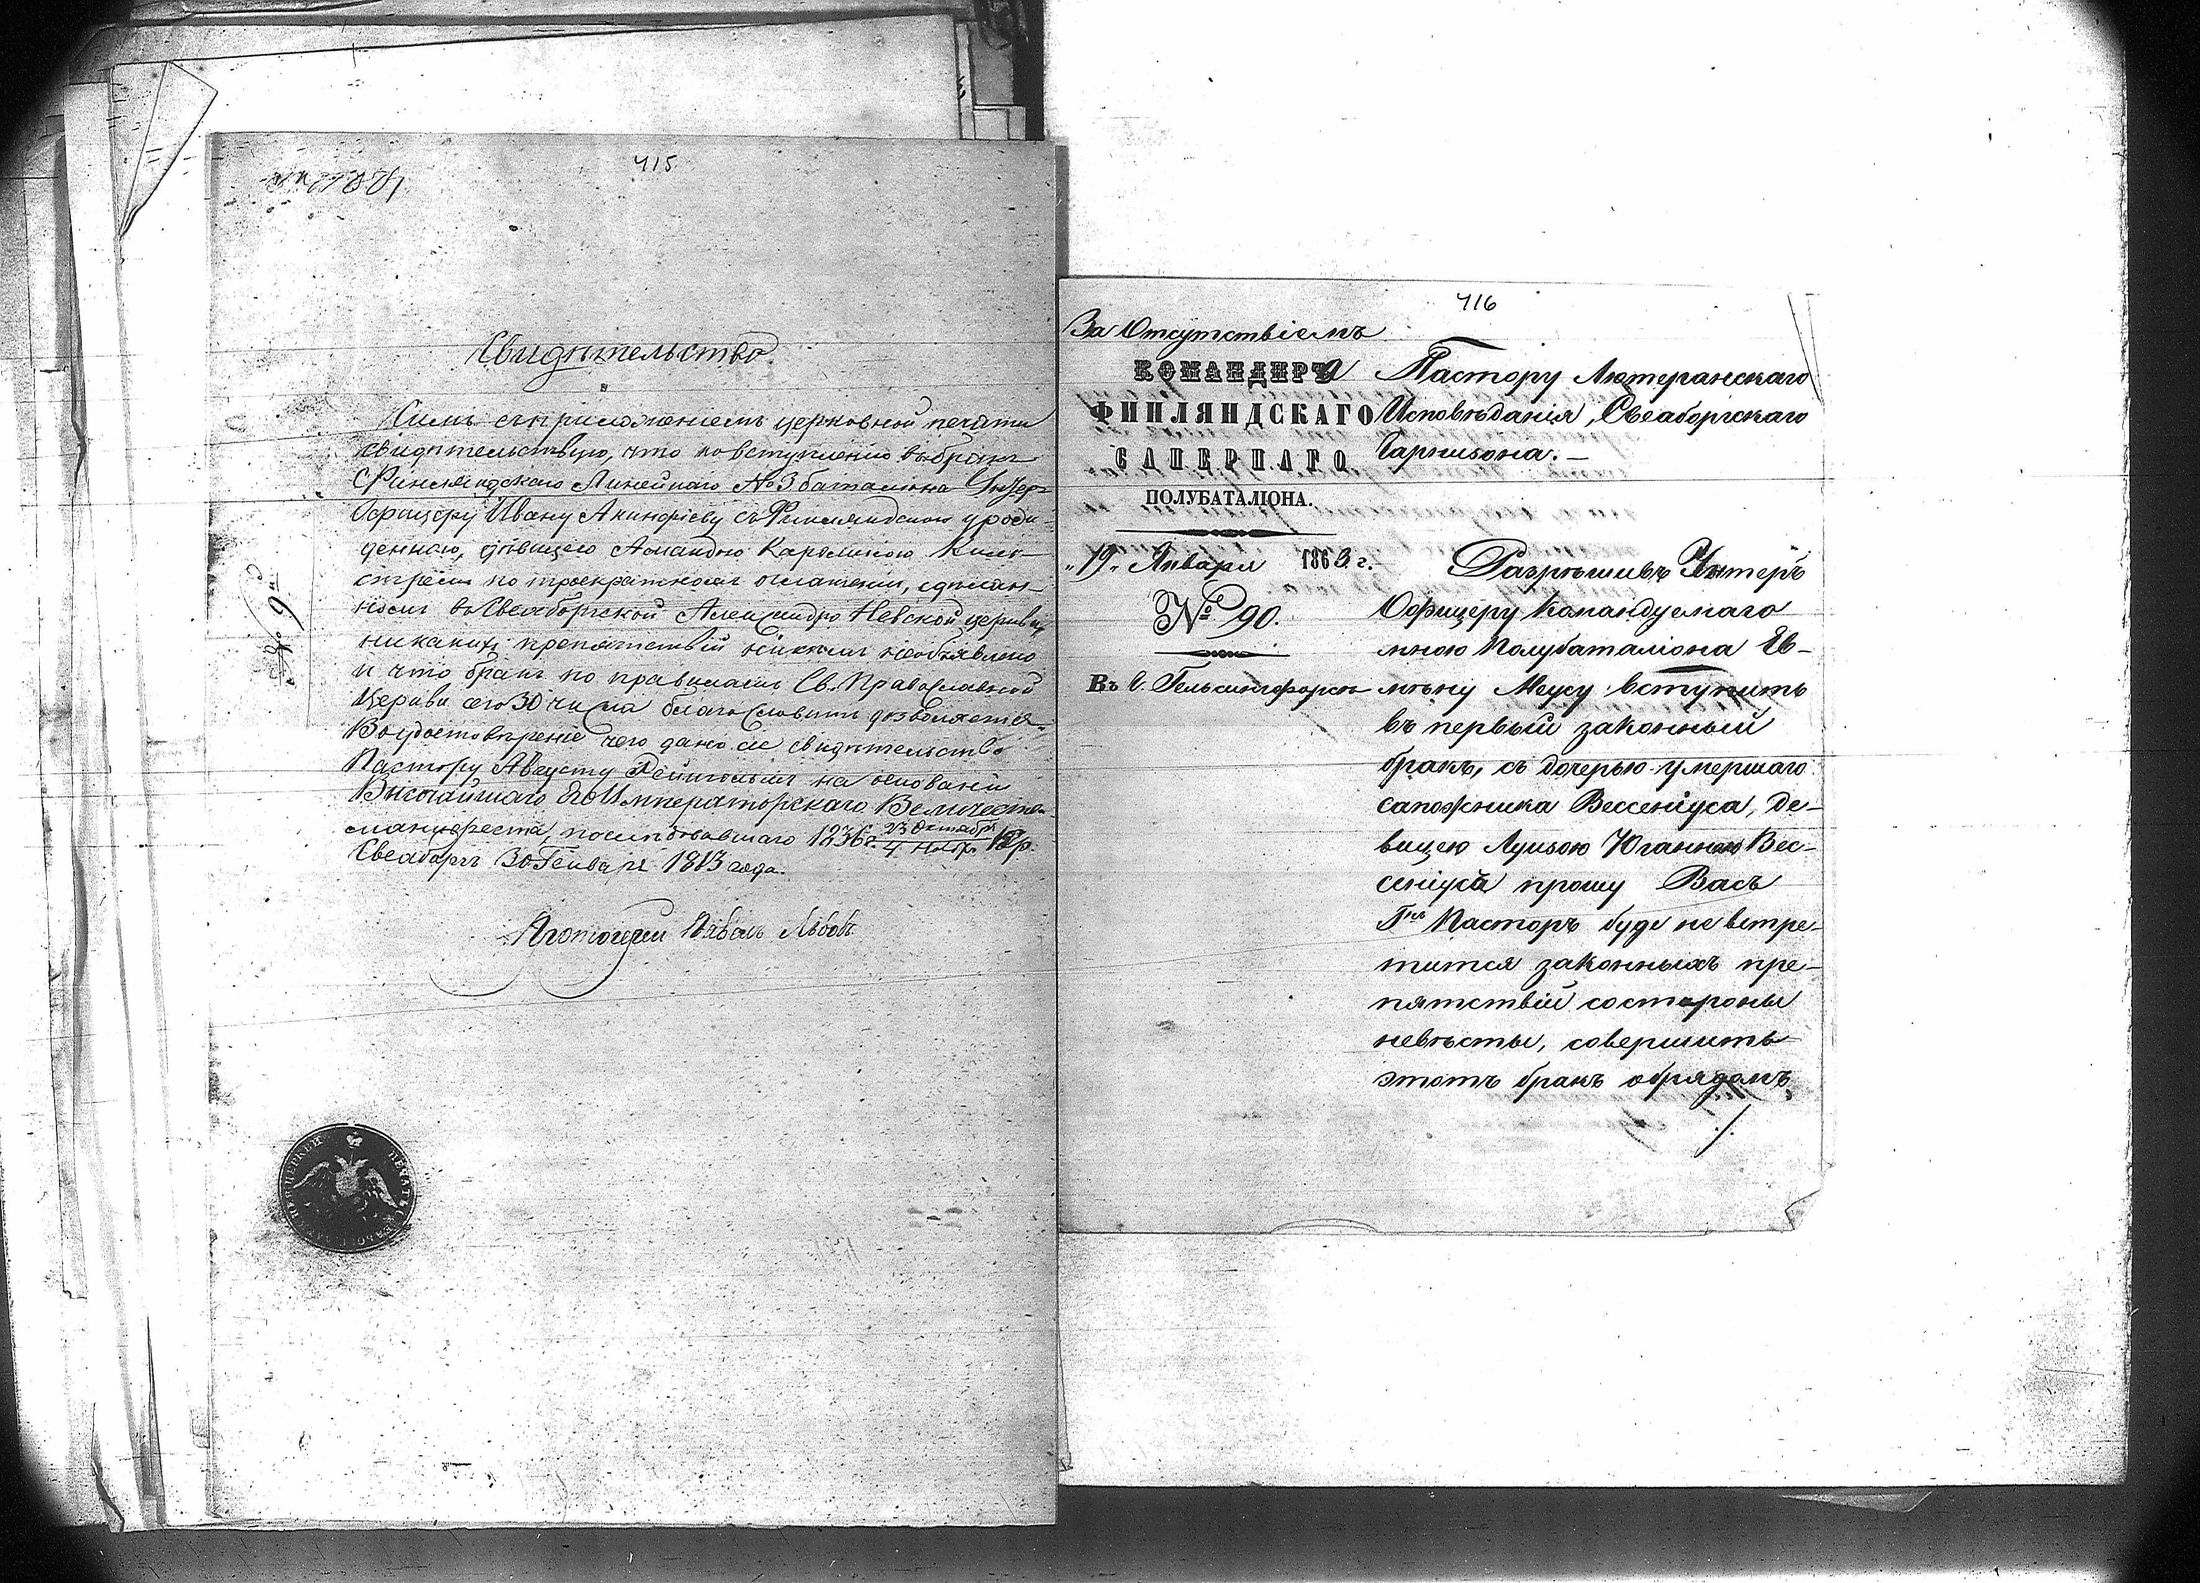 415
Свидѣтельство.
Симъ съ приложеніемъ церковной печати
свидѣтельствую, что ко вступленію въ бракъ
Финляндскаго Линейнаго №3 баталіона Унтеръ
Офицеру Ивану Акинфіеву съ Финляндскою уроже-
денною, дѣвицею Амандою Каролиною
по троекратномъ оглашеніи, сдѣлан-
номъ въ Свеаборгской Александро Невской церкви,
никакихъ препятствій никѣмъ необъявлено
и что бракъ по правиламъ Св. Православной
Церкви сего 30 числа благословить дозволяется.
Въ удостовѣреніе чего дано сіе свидѣтельство
Пастору Августу на основаніи
Высочайшаго Его Императорскаго Величества
манифеста, послѣдовавшаго 1836 г. 23 Октября / 4 Ноября
Свеаборгъ 30 Генваря 1863 года.
Протоіерей Павелъ Львовъ
№ 9й
416
За Отсутствіемъ
КОМАНДИРА
ФИНЛЯНДСКАГО
САПЕРНАГО
ПОЛУБАТАЛІОНА.
„19„ Января 1863 г.
№ 90.
Въ г. Гельсингфорсѣ
Пастору Лютеранскаго
Исповѣданія, Свеаборгскаго
Гарнизона.—
Разрѣшивъ Унтеръ
Офицеру Командуемаго
мною Полубаталіона Ев-
мѣну Меусу вступить
въ первый законный
бракъ, съ дочерью умершаго
сапожника Вессеніуса, де-
вицею Луизою Юганною Вес-
сеніуса прошу Васъ
Гнъ Пасторъ буде не встре-
тится законныхъ пре-
пятствій состороны
невѣсты, совершить
этотъ бракъ обрядомъ
./.